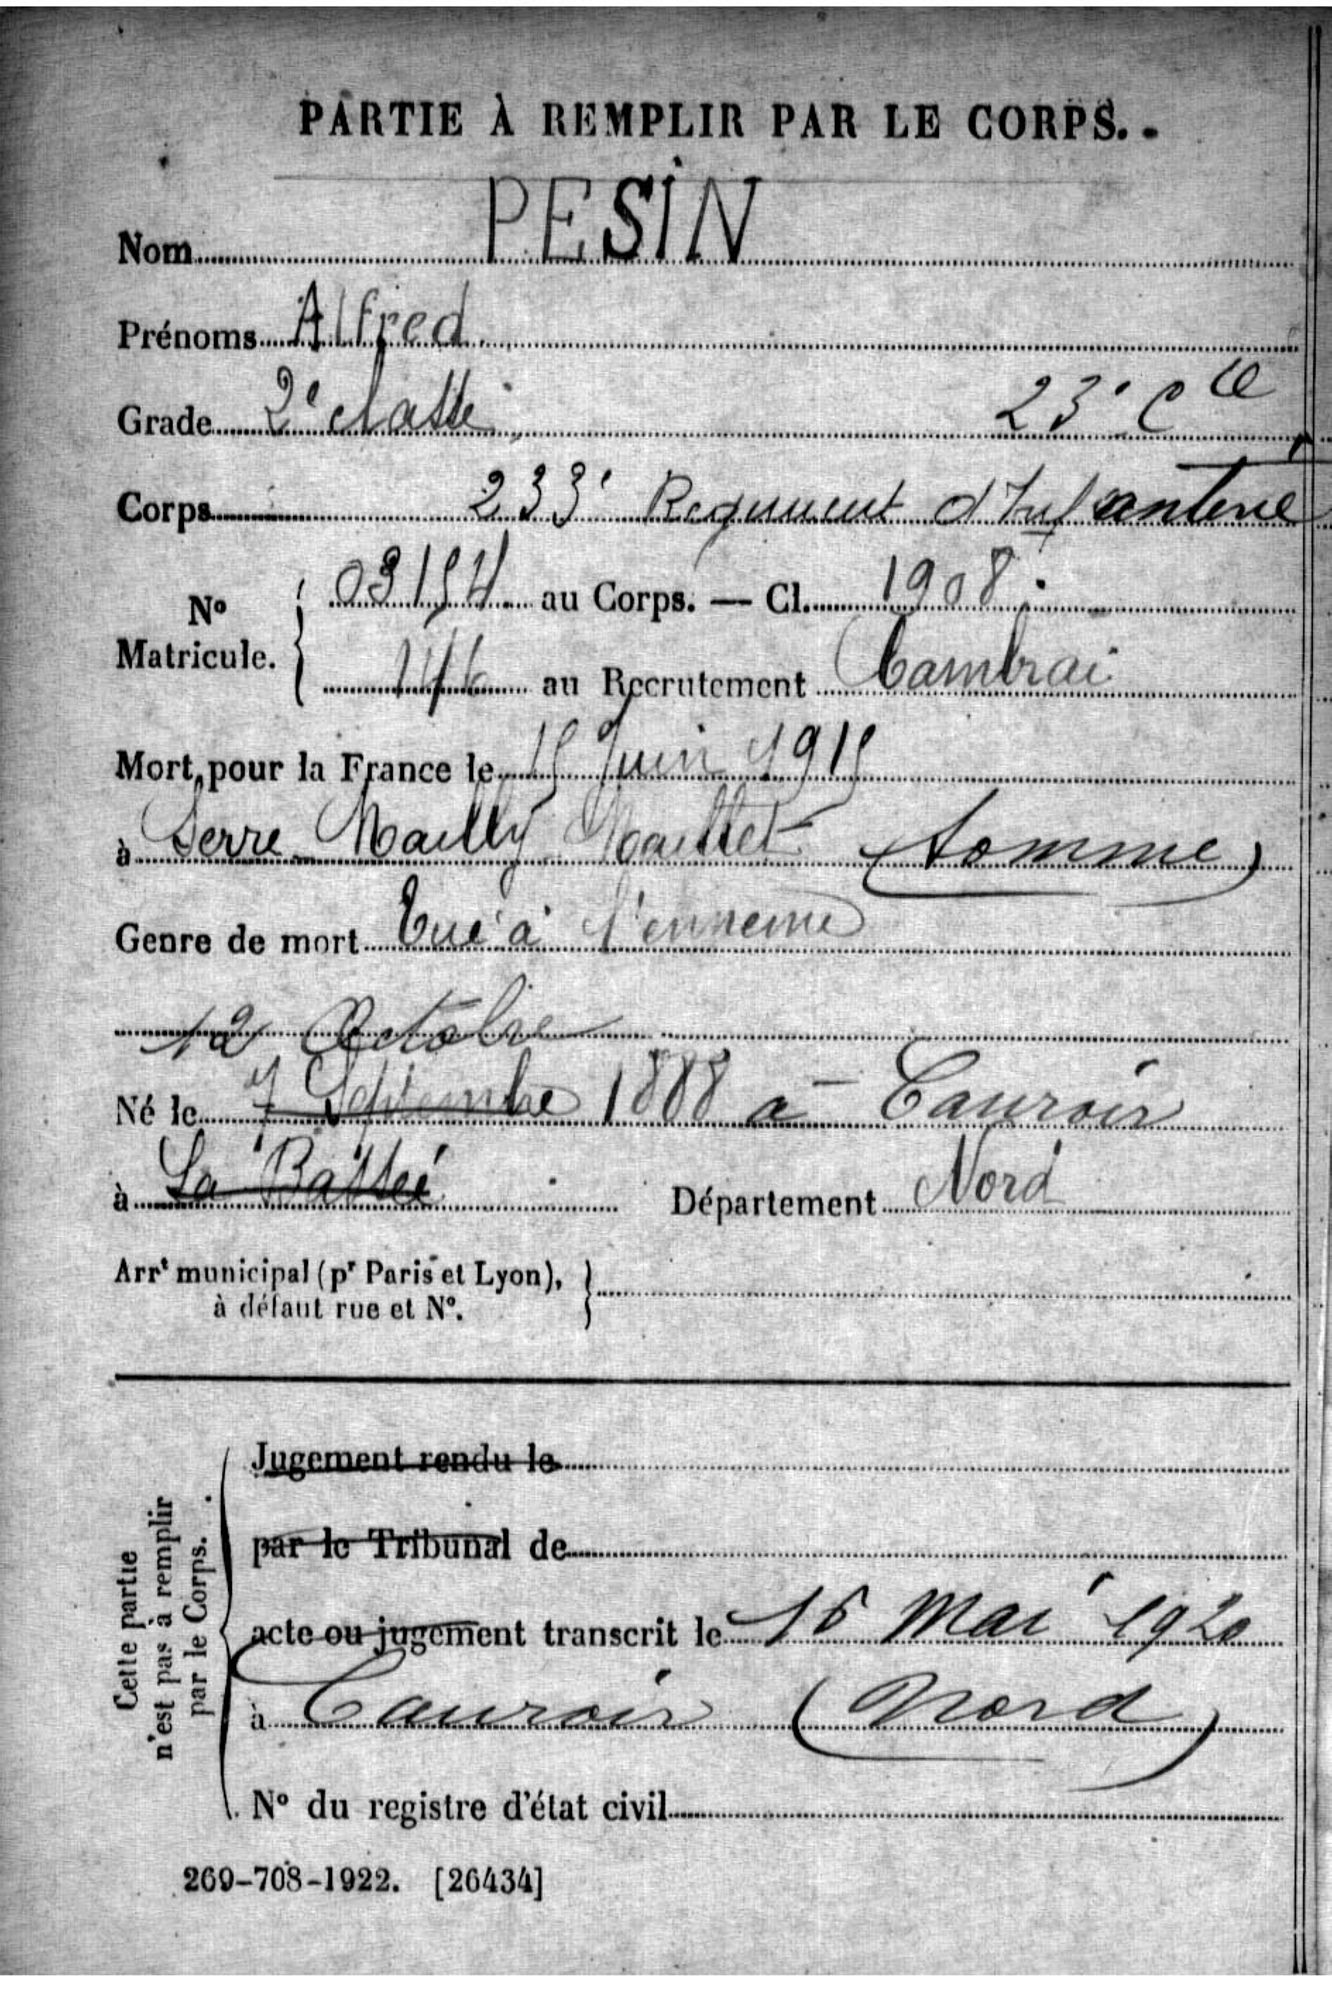 PARTIE À REMPLIR PAR LE CORPS.
Nom PESIN
Prénoms Alfred
Grade 2e classe 23e Cie
Corps 233e Regiment d'Infanterie
No Matricule. 03154 au Corps. — Cl. 1908.
146 au Recrutement Cambrai
Mort pour la France le 15 Juin 1915
à Serre Mailly Maillet (Somme)
Genre de mort Tué à l'ennemi
12 Octobre
Né le 7 Septembre 1888 à Cauroir
à La Bassée Département Nord
Arrt municipal (pr Paris et Lyon),
à défaut rue et No.
Cette partie
n'est pas à remplir
par le Corps.
Jugement rendu le
par le Tribunal de
acte ou jugement transcrit le 16 Mai 1920
à Cauroir (Nord)
No du registre d'état civil
269-708-1922. [26434]